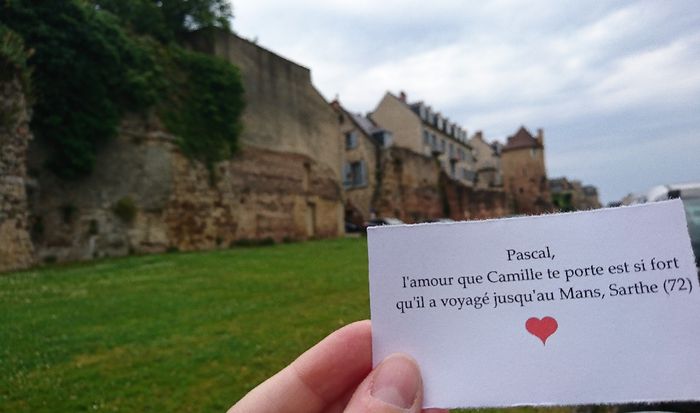 Pascal,
l'amour que Camille te porte est si fort
qu'il a voyagé jusqu'au Mans, Sarthe (72)